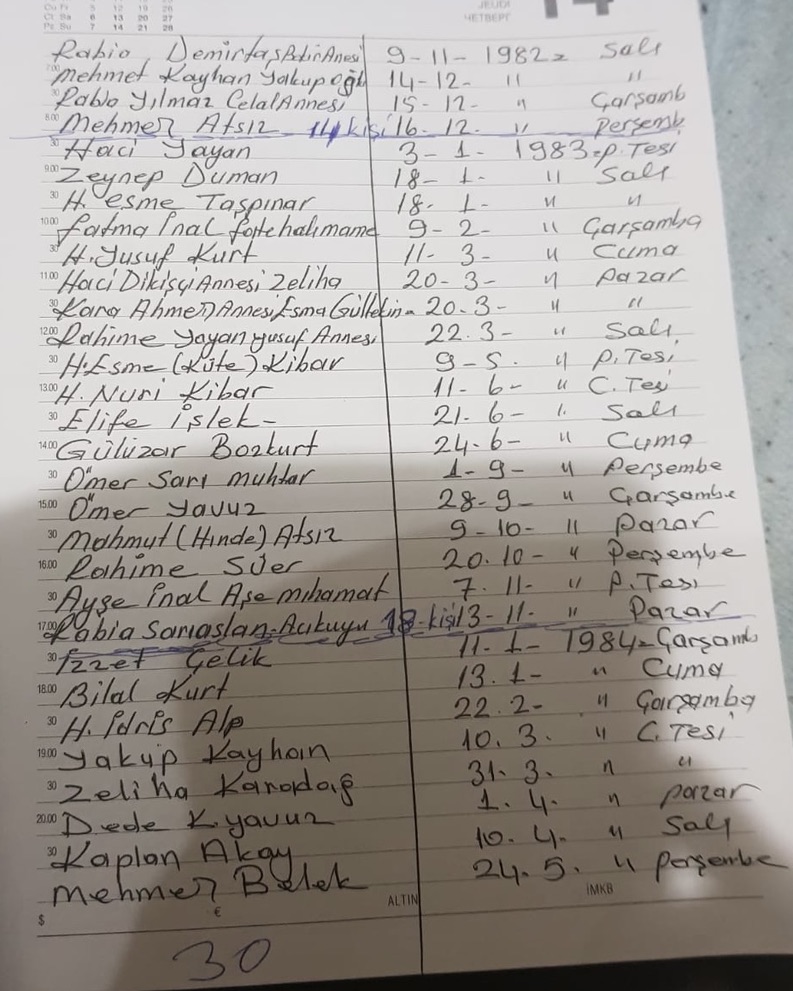 JEUDİ
Cu Fr 5 12 19 26
ЧЕТВЕРГ 14
Ct Sa 6 13 20 27
Pz Su 7 14 21 28
Rabia Demirtaş Bekir Anesi 9-11-1982= Salı
7.00 Mehmet Kayhan Yakupoğlu 14-12- " "
30 Rabia Yılmaz Celal Annesi 15-12- " Çarşamb
8.00 Mehmet Atsız 11 kişi 16.12. " Perşemb
30 Hacı Yayan 3-1-1983= P.Tesi
9.00 Zeynep Duman 18-1- " Salı
30 H. esme Taşpınar 18-1- " "
10.00 Fatma İnal 9-2- " Çarşamba
30 H. Yusuf Kurt 11-3- " Cuma
11.00 Haci Dikişçi Annesi Zeliha 20-3- " Pazar
30 Kara Ahmet Annesi Esma Gültekin- 20.3- " "
12.00 Rahime Yayan yusuf Annesi 22.3- " Salı
30 H.Esme (Küte) Kibar 9-5. " P.Tesi
13.00 H. Nuri Kibar 11-6- " C.Tesi
30 Elife İşlek- 21.6- " Salı
14.00 Gülüzar Bozkurt 24.6- " Cuma
30 Ömer Sarı muhtar 1-9- " Perşembe
15.00 Ömer Yavuz 28-9- " Çarşambe
30 Mahmut (Hinde) Atsız 9-10- " Pazar
16.00 Rahime Süer 20.10- " Perşembe
30 Ayşe İnal Aşe mıhamat 7.11- " P.Tesi
17.00 Rabia Sarıaslan-Acıkuyu 18-kişi 13-11- " Pazar
30 İzzet Çelik 11-1-1984= Çarşamb
18.00 Bilal Kurt 13.1- " Cuma
30 H. İdris Alp 22.2- " Çarşamba
19.00 Yakup Kayhan 10.3. " C.Tesi
30 Zeliha Karadağ 31.3. " "
20.00 Dede K.yavuz 1.4. " pazar
30 Kaplan Akay 10.4. " Salı
Mehmet Belek 24.5. " perşembe
$ € ALTIN İMKB
30